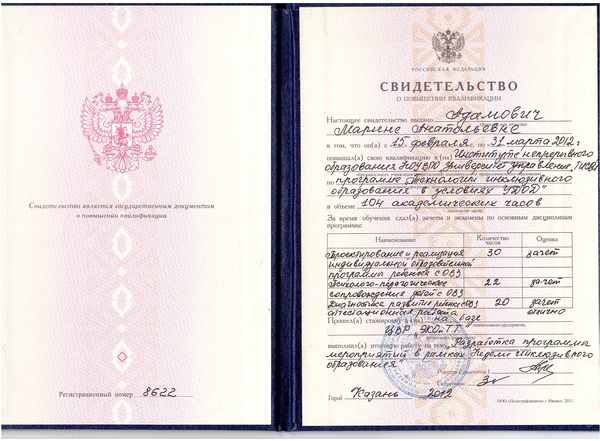 Свидетельство является государственным документом
о повышении квалификации
Регистрационный номер 8622
РОССИЙСКАЯ ФЕДЕРАЦИЯ
СВИДЕТЕЛЬСТВО
О ПОВЫШЕНИИ КВАЛИФИКАЦИИ
Настоящее свидетельство выдано Адамович
Марине Анатольевне
в том, что он(а) с 15 февраля по 31 марта 2012 г
повышал(а) свою квалификацию в (на) Институте непрерывного
образования НОУ ВПО Университет управления "ТИСБИ"
по программе "Технологии инклюзивного
образования в условиях УДОД"
в объеме 104 академических часов
За время обучения сдал(а) зачеты и экзамены по основным дисциплинам
программы:
Наименование Количество часов Оценка
Проектирование и реализация 30 зачет
индивидуальной образовательной
программы ребенка с ОВЗ
Психолого-педагогическое 22 зачет
сопровождение детей с ОВЗ
Диагностика развития ребенка с ОВЗ 20 зачет
аттестационная работа отлично
Прошел(а) стажировку в (на) на базе
ЦВР "ЭКОиТТ"
выполнил(а) итоговую работу на тему "Разработка программы
мероприятий в рамках Недели инклюзивного
образования"
Ректор (директор)
Секретарь
Город Казань 2012